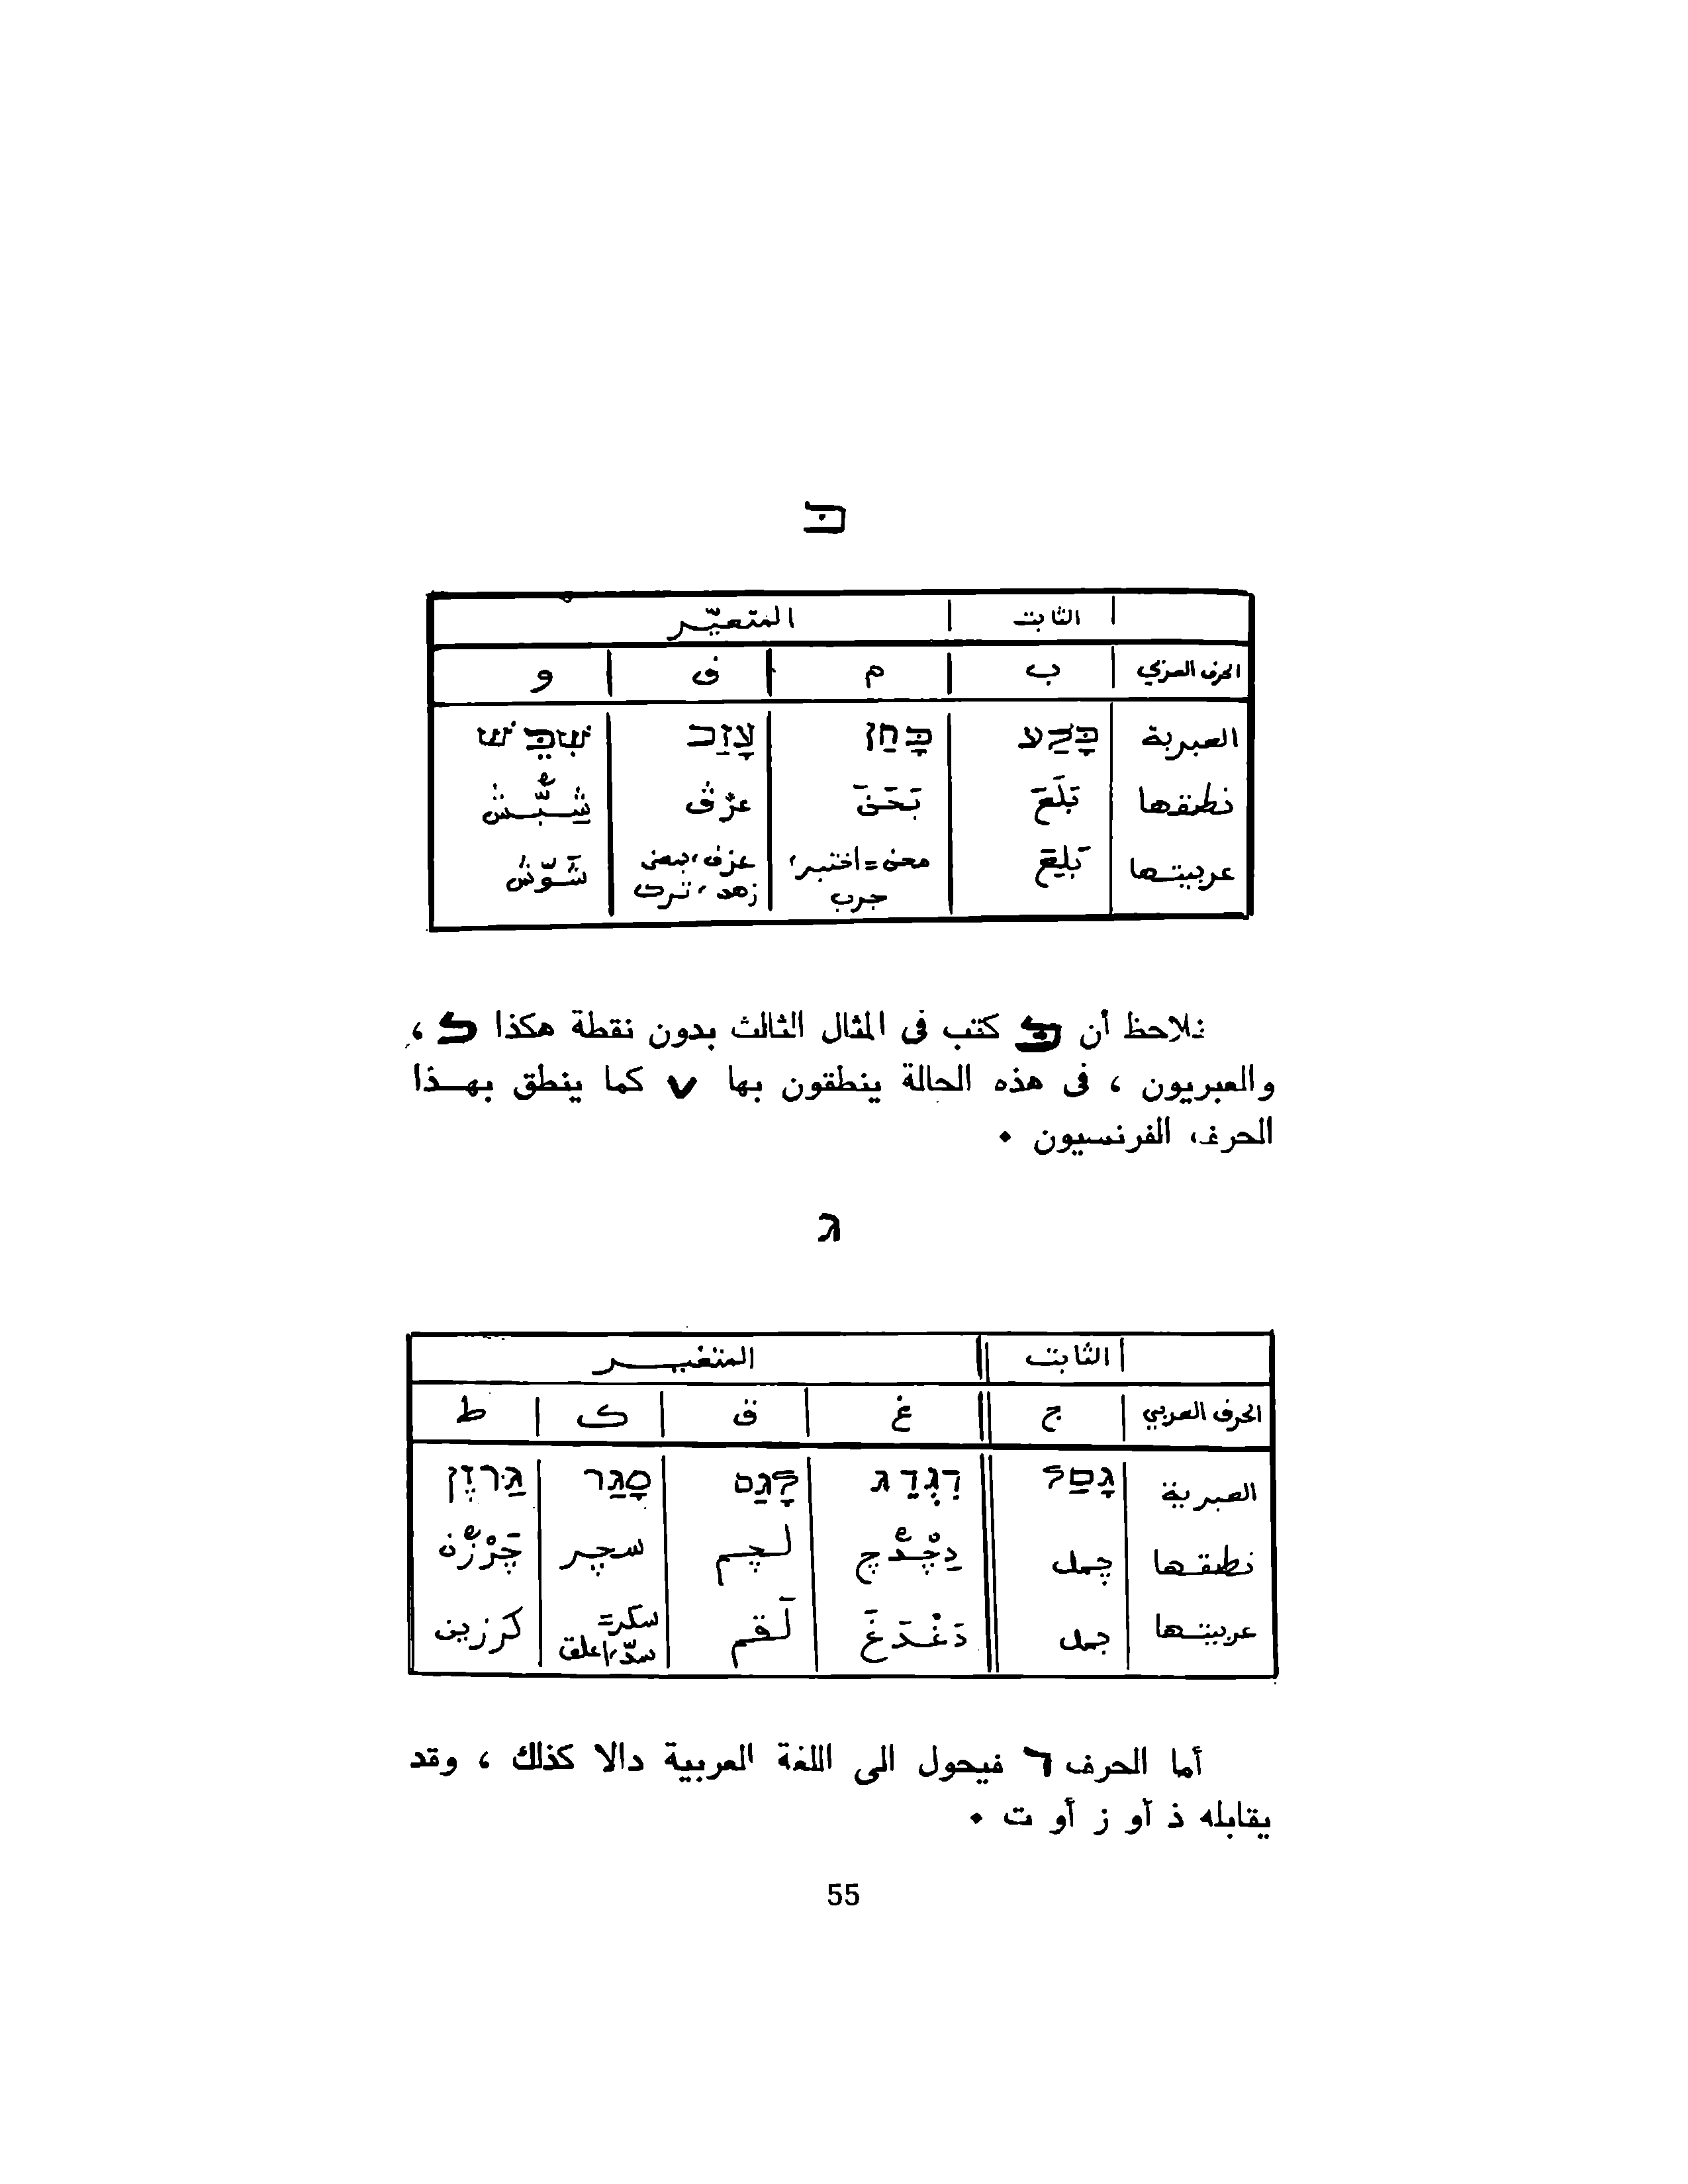 בּ
الثابت المتغيّر
الحرف العربي ب م ف و
العبرية בָּלַע בָּחַן עָזַב שִׁבֵּשׁ
نطقها بَلَعَ بَحَنَ عزڤ شِبّش
عربيتها بَلِعَ محن = اختبر، عزف، بمعنى شَوَّش
جرب زهد، ترك
نلاحظ أن בּ كتب فى المثال الثالث بدون نقطة هكذا ב ،
والعبريون ، فى هذه الحالة ينطقون بها v كما ينطق بهــذا
الحرف، الفرنسيون •
ג
الثابت المتغيــر
الحرف العربي ج غ ق ك ط
العبرية גָמַל דִגְדֵג לָגַם סָגַר גַרְזֶן
نطقها چمل دِچْدچ لچم سچر چَرْزن
عربيتها جمل دَغْدَغَ لَقم سكر= كرزين
سدّ، اغلق
أما الحرف ד فيحول الى اللغة العربية دالا كذلك ، وقد
يقابله ذ أو ز أو ت •
55